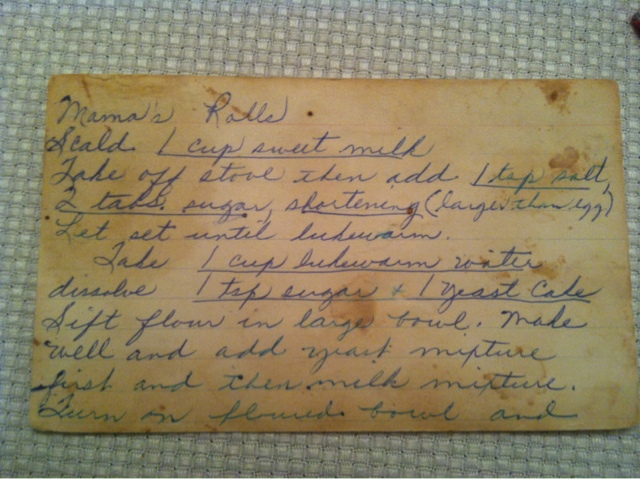 Mama's Rolls
Scald 1 cup sweet milk
Take off stove then add 1 tsp salt,
2 tabs. sugar, shortening (larger than egg)
Let set until lukewarm.
Take 1 cup lukewarm water
dissolve 1 tsp sugar + 1 yeast cake
Sift flour in large bowl. Make
well and add yeast mixture
first and then milk mixture.
Turn in floured bowl and